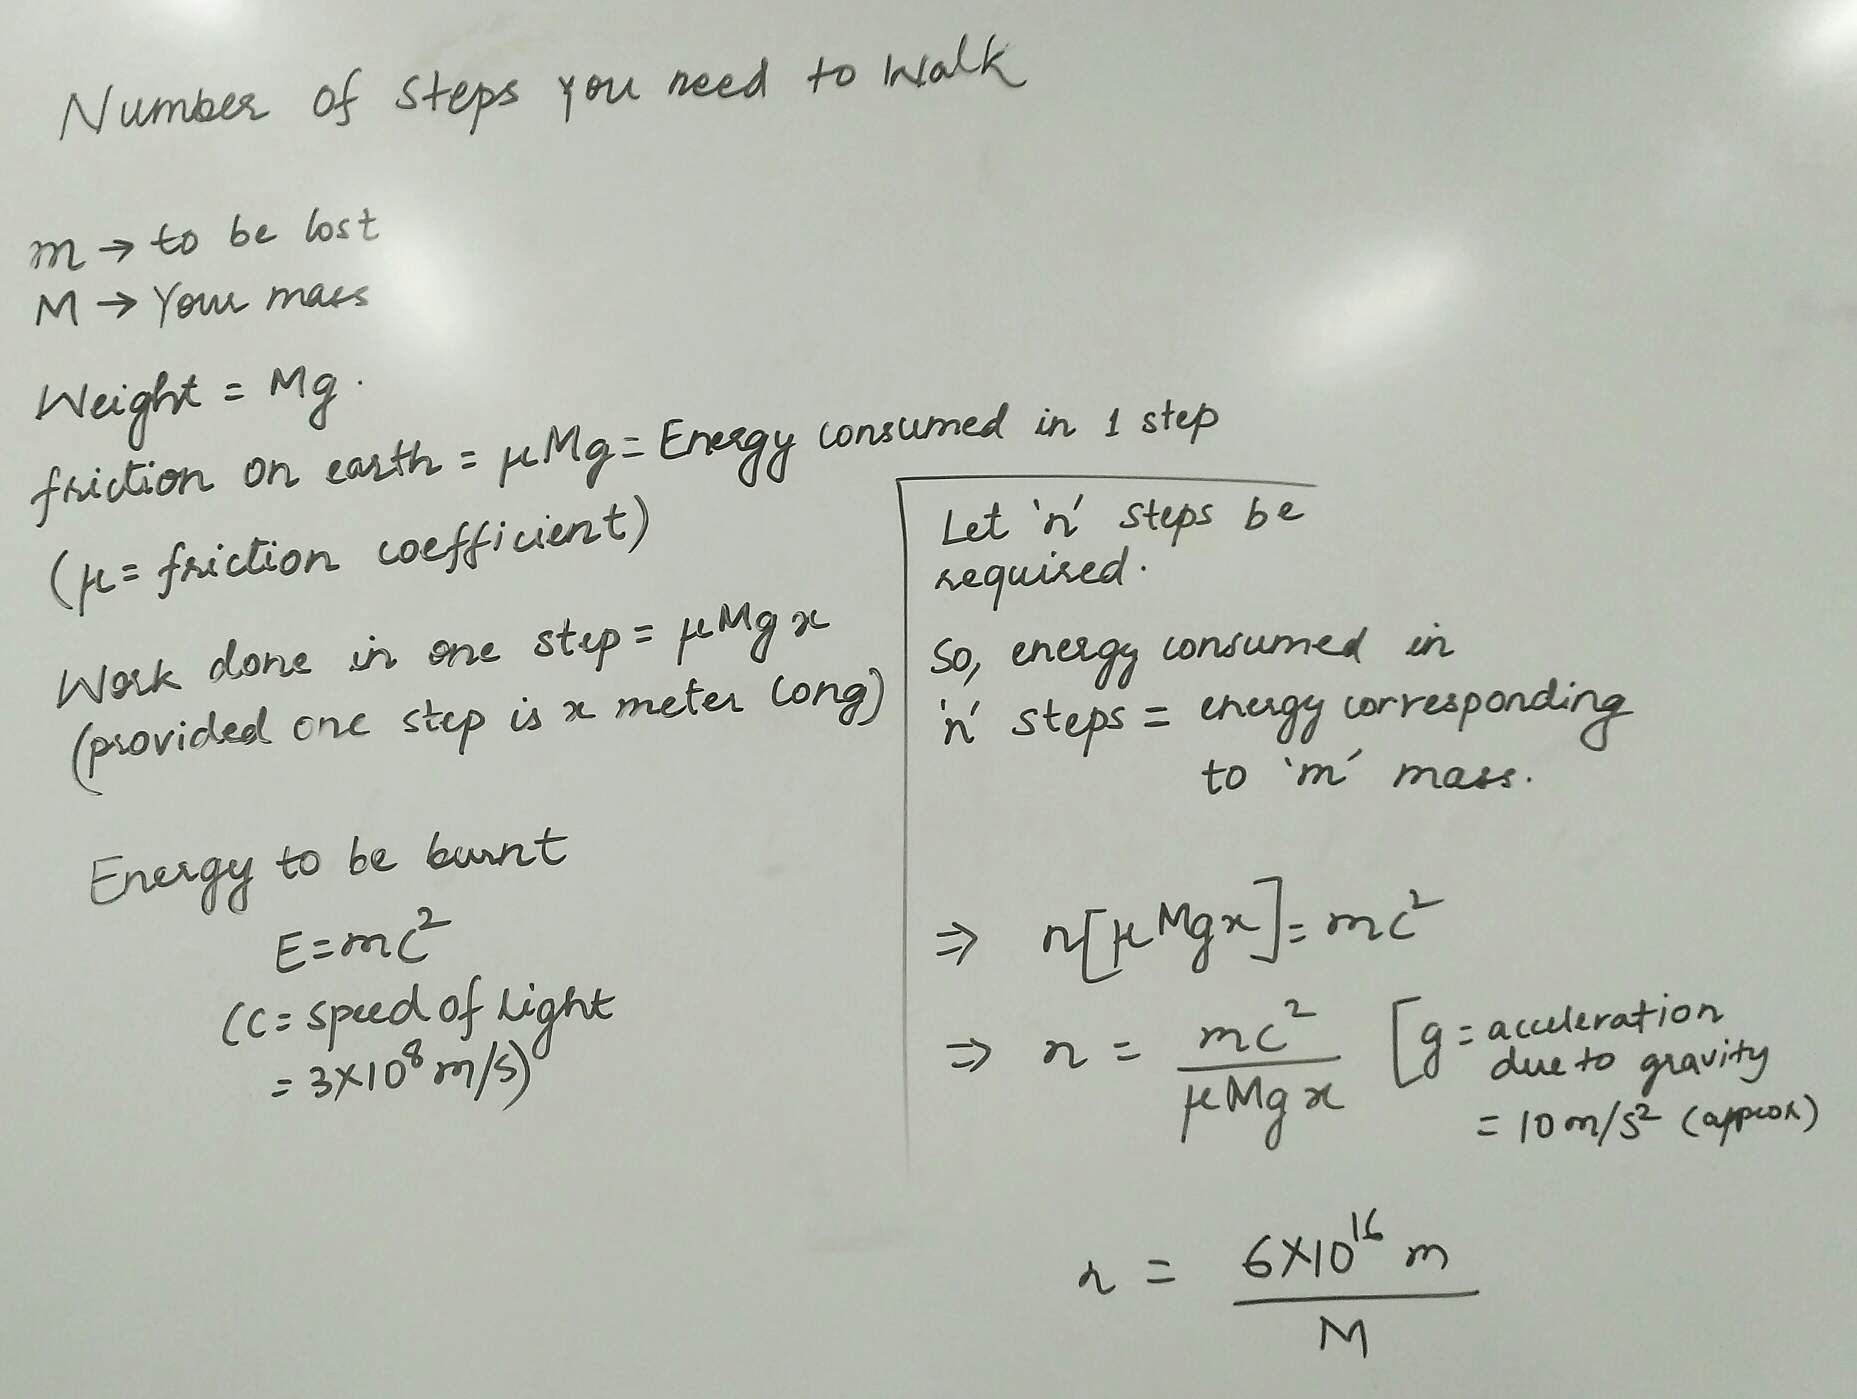 Number of steps you need to walk
m → to be lost
M → Your mass
Weight = Mg.
friction on earth = μMg = Energy consumed in 1 step
(μ = friction coefficient)
Work done in one step = μMgx
(provided one step is x meter long)
Energy to be burnt
E = mc²
(C = speed of light
= 3×10⁸ m/s)
Let 'n' steps be
required.
So, energy consumed in
'n' steps = energy corresponding
to 'm' mass.
⇒ n[μMgx] = mc²
⇒ n = mc² / μMgx
[g = acceleration
due to gravity
= 10 m/s² (approx)
n = 6×10¹⁶ m / M